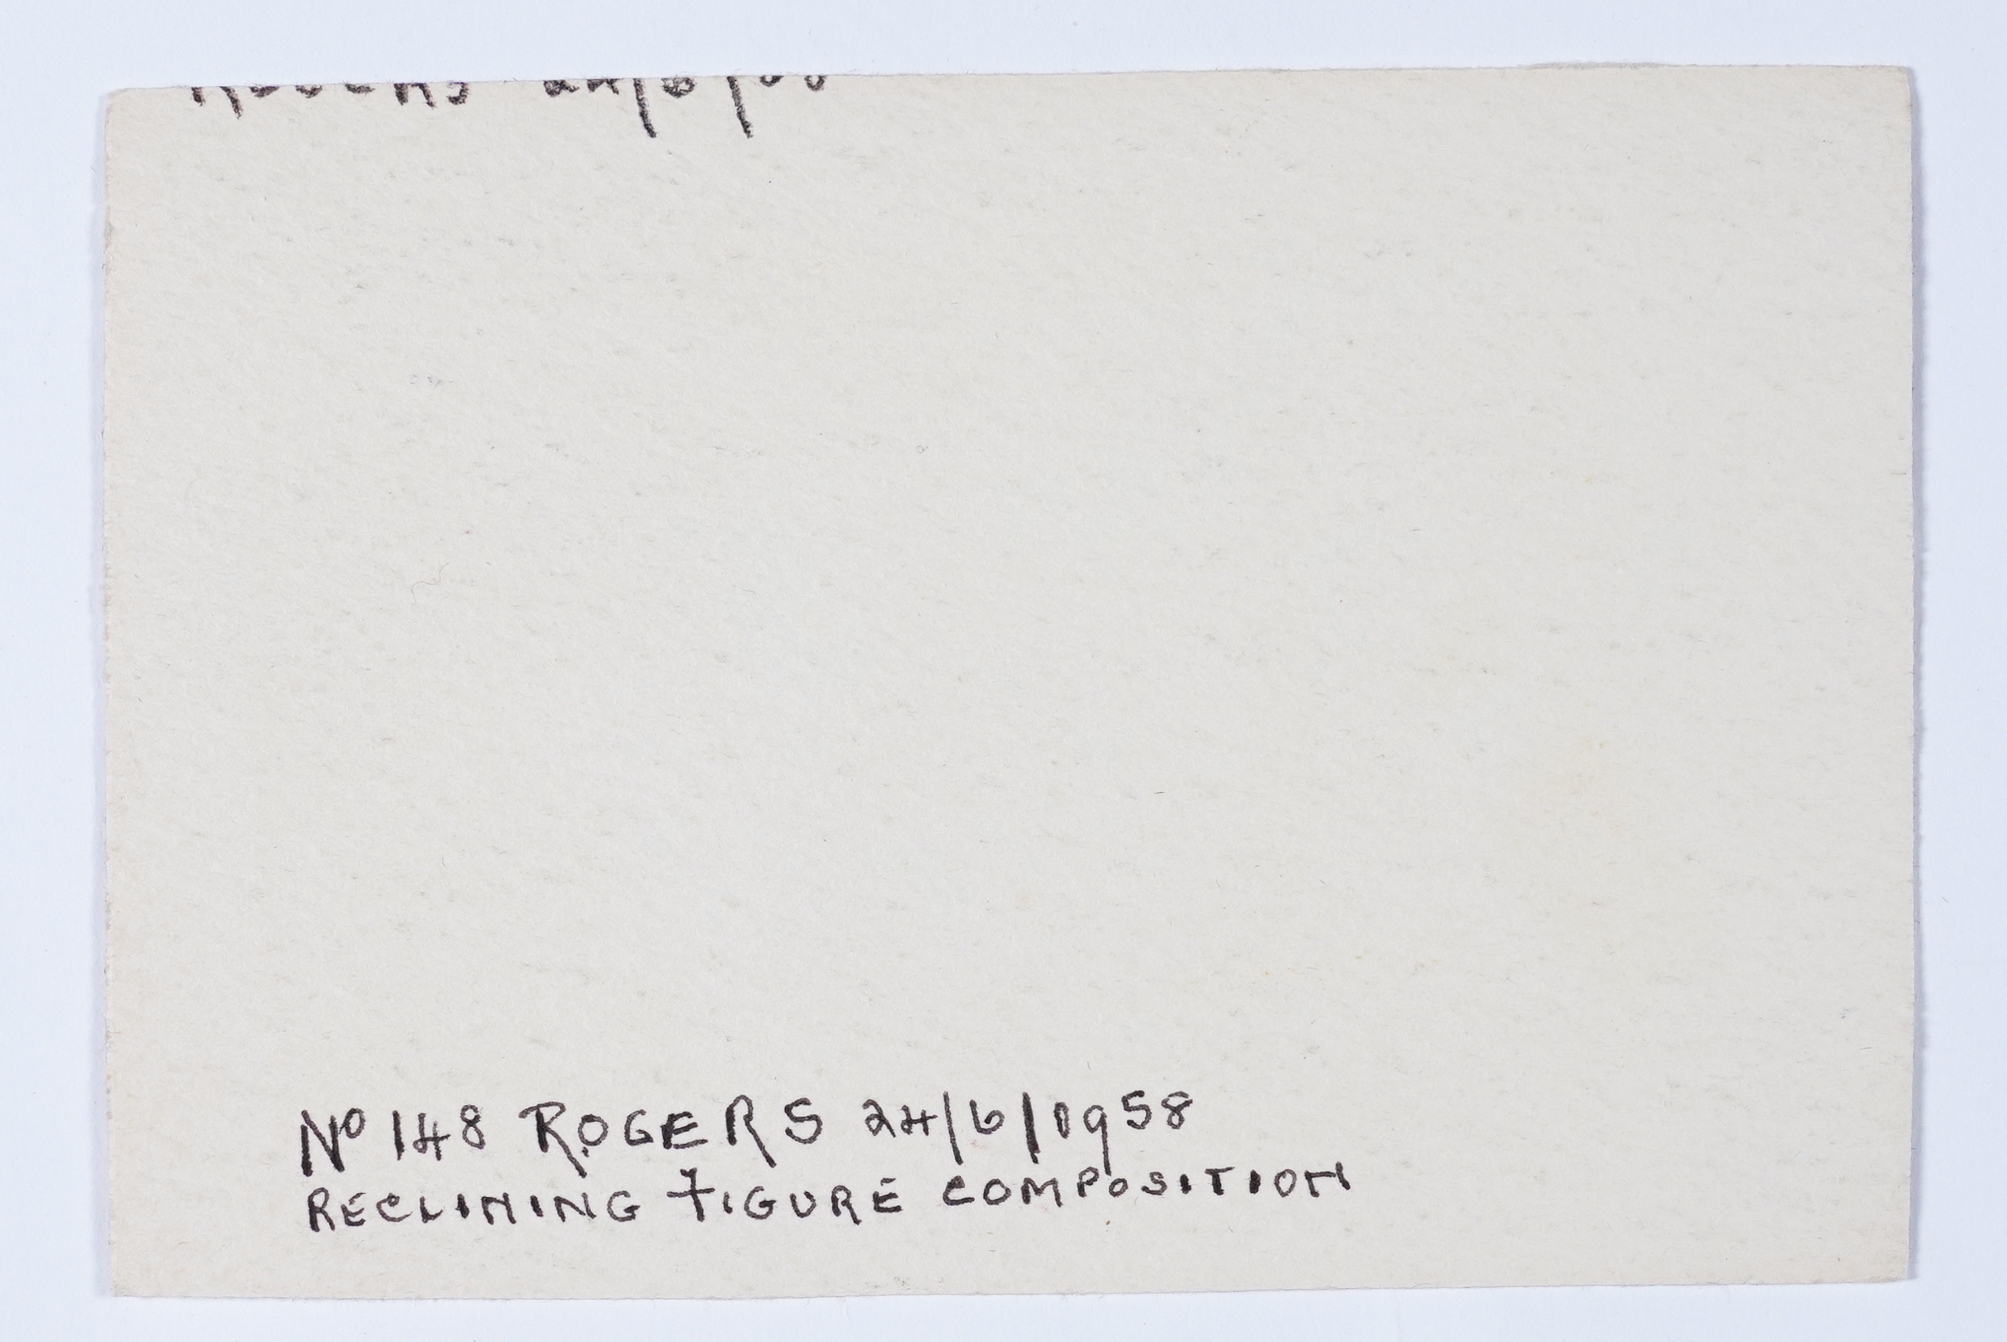 ROGERS 24/6/58
Nº 148 ROGERS 24/6/1958
RECLINING FIGURE COMPOSITION